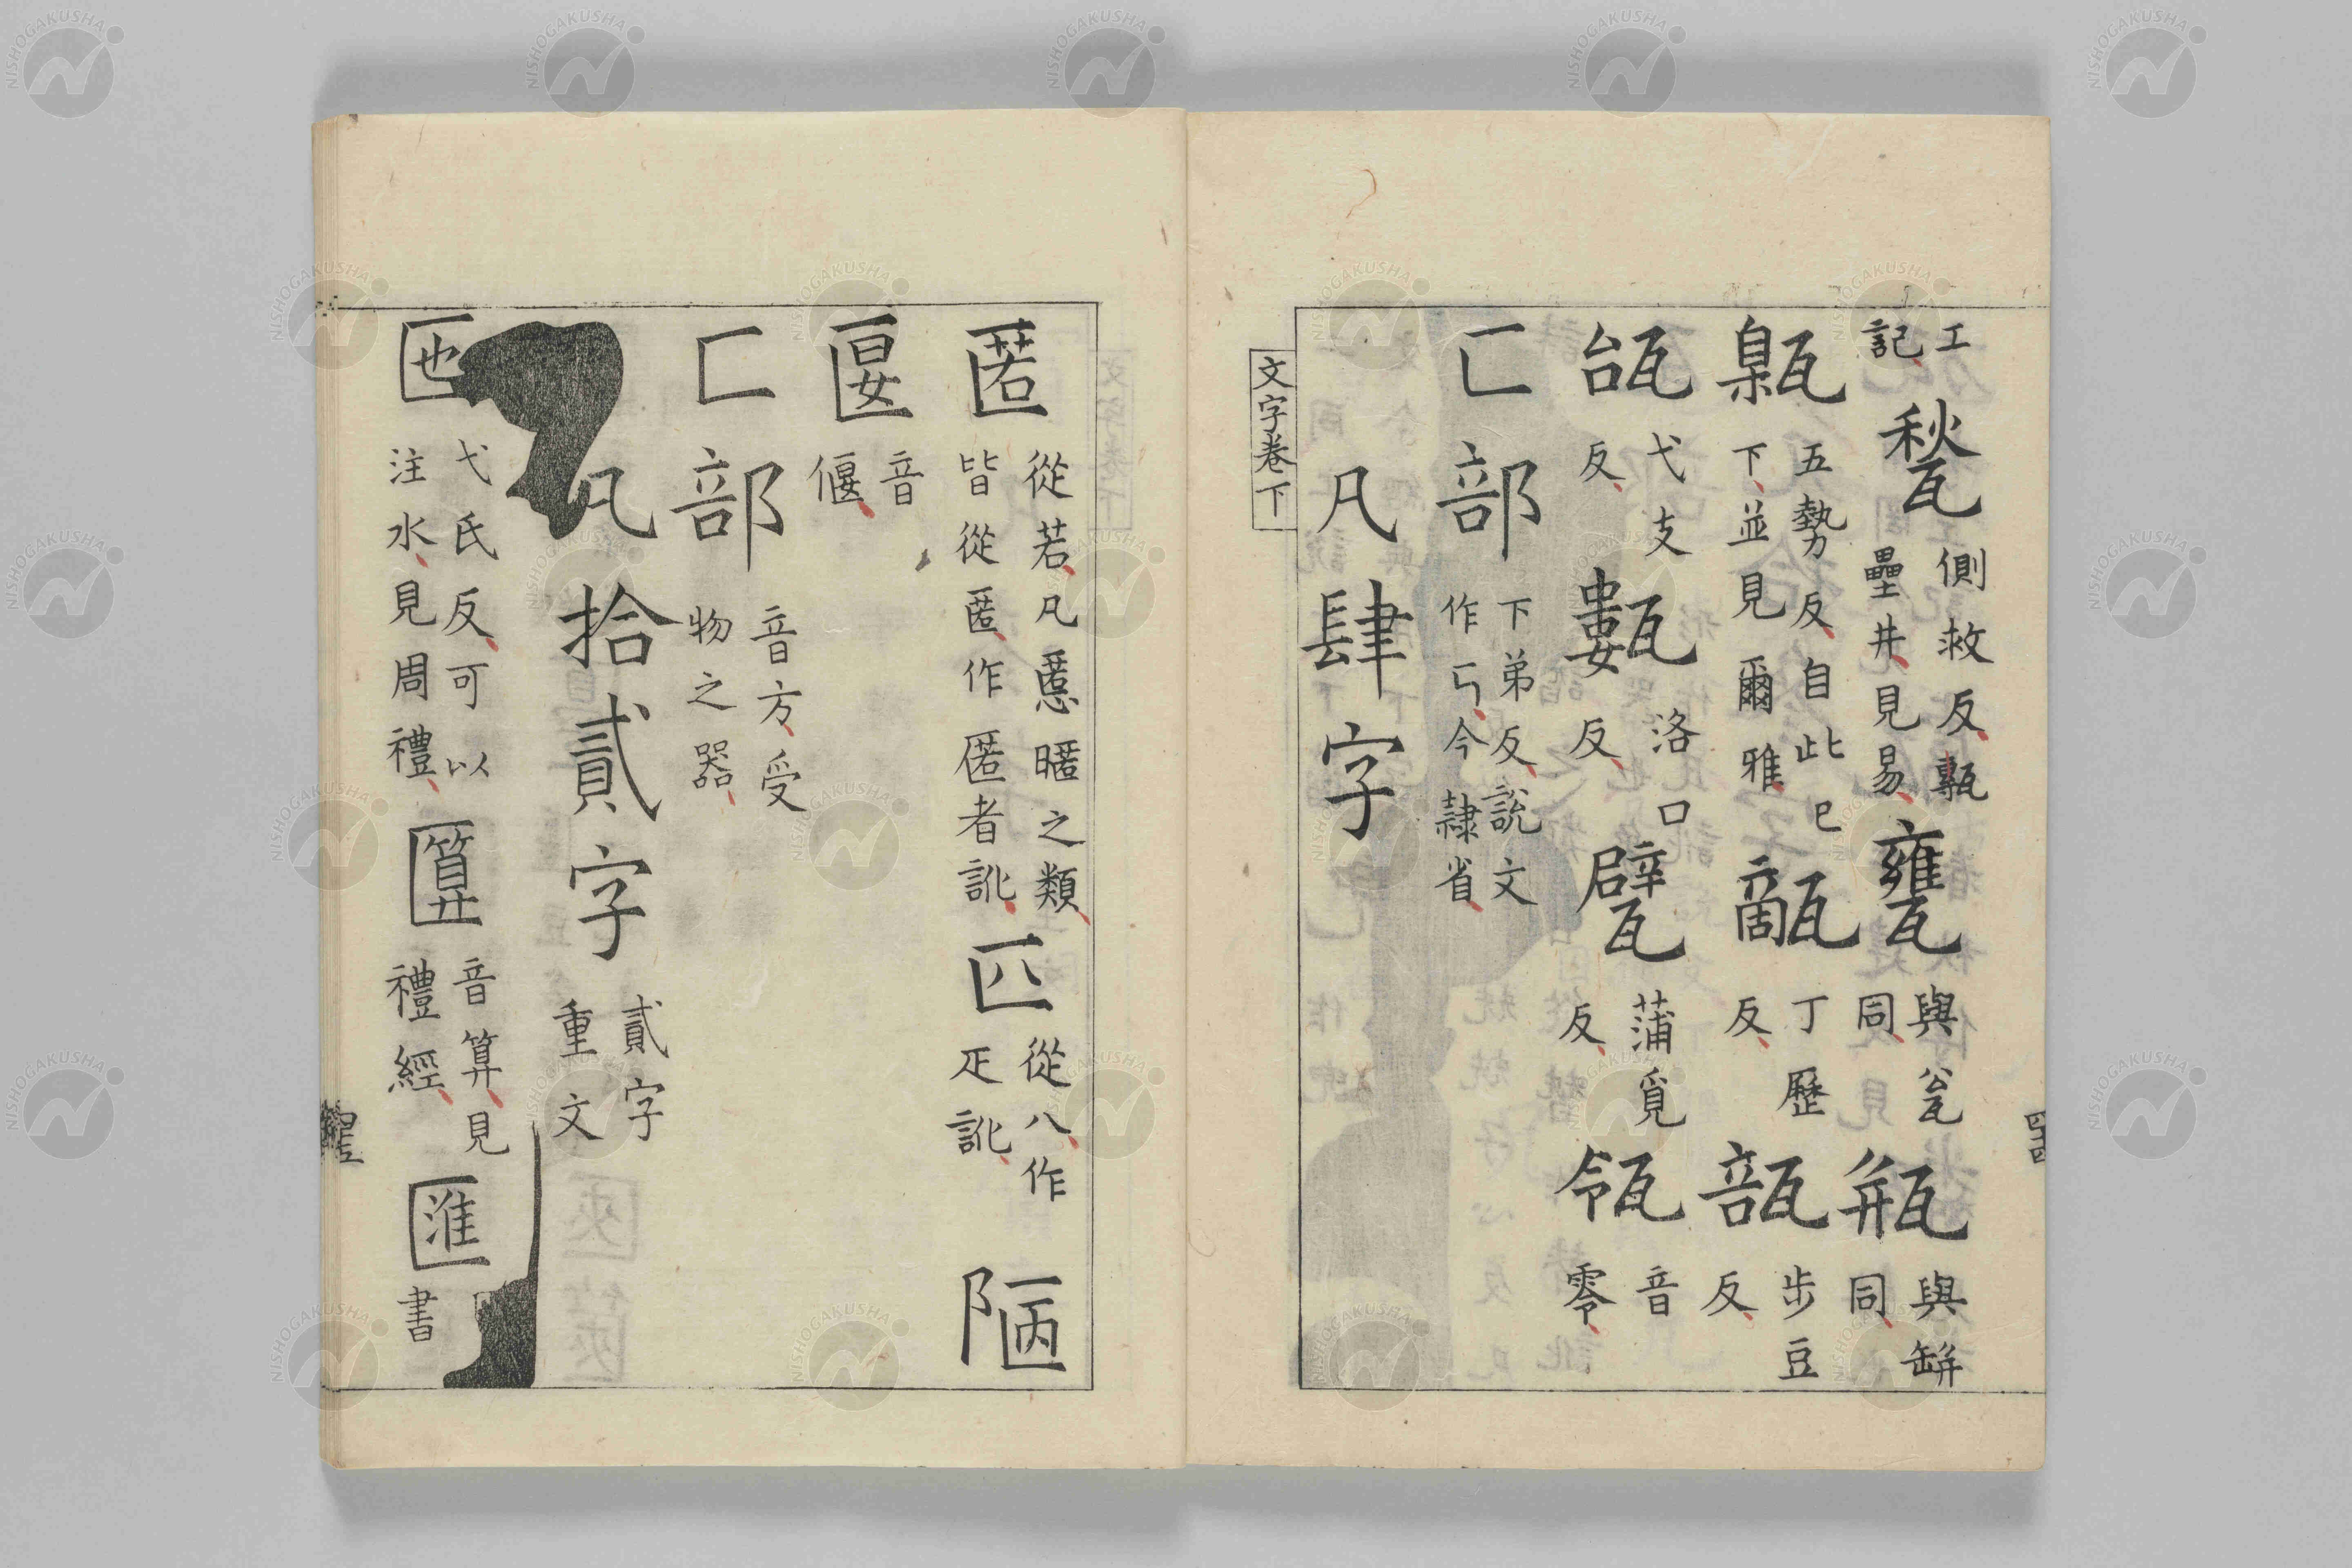 工記甃側救反甎壘井見易甕與瓮同缾與缾同
甈五勢反自此已下並見爾雅甋丁歷反瓿步豆反
瓵弋支反甊洛口反甓蒲覓反瓴音零
匸部下弟反說文作𠃑今隸省
凡肆字
文字卷下
匿從若凡慝暱之類皆從匿作匿者訛匹從八作疋訛陋
匽音偃
匚部音方受物之器
凡拾貳字貳字重文
匜弋氏反可以注水見周禮匴音算見禮經匯書
NISHOGAKUSHA